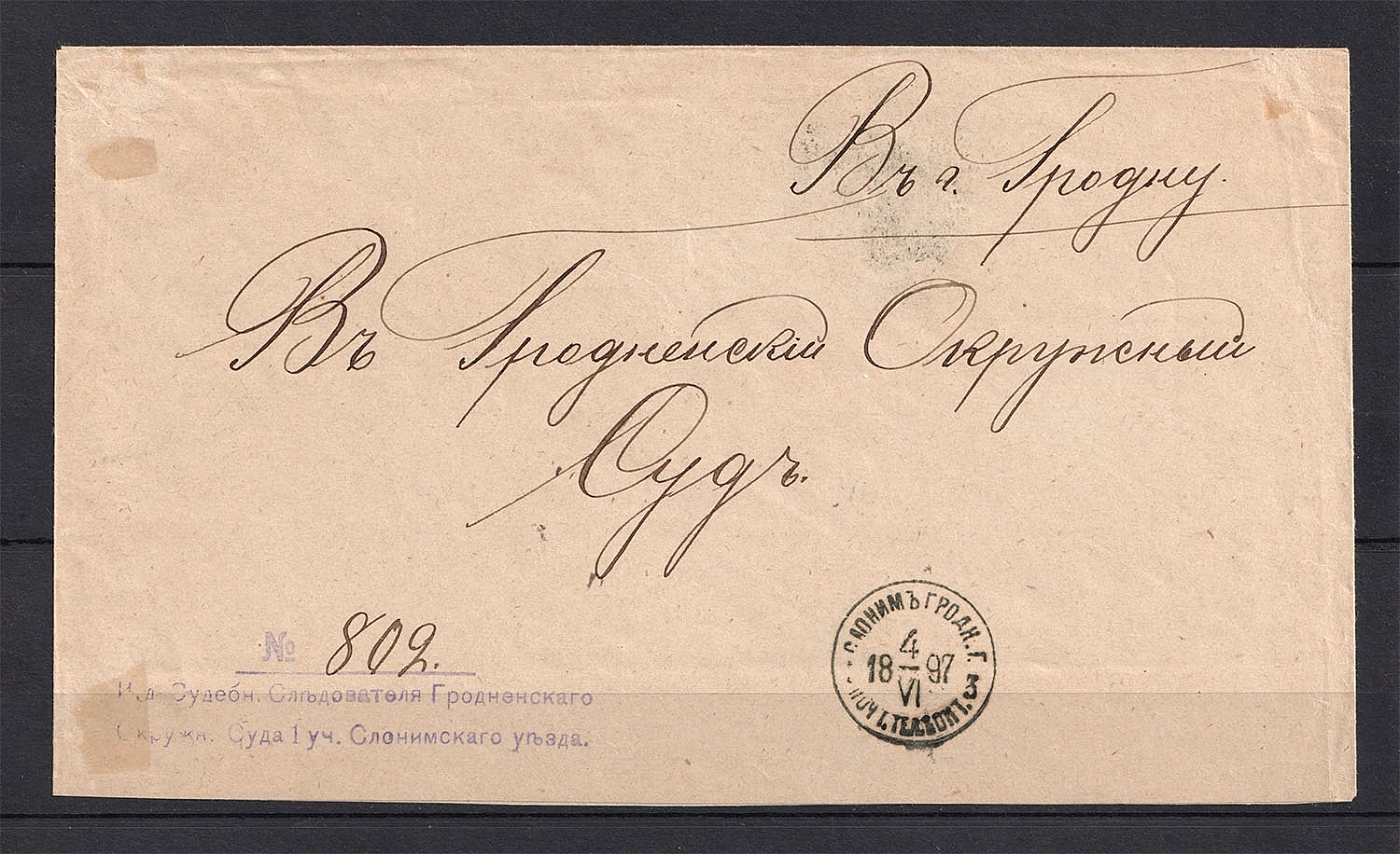 Въ г. Гродну.
Въ Гродненскій Окружный
Судъ.
№ 802.
И. д. Судебн. Слѣдователя Гродненскаго
Окружн. Суда 1 уч. Слонимскаго уѣзда.
СЛОНИМЪ ГРОДН. Г.
4
18 97
VI
3